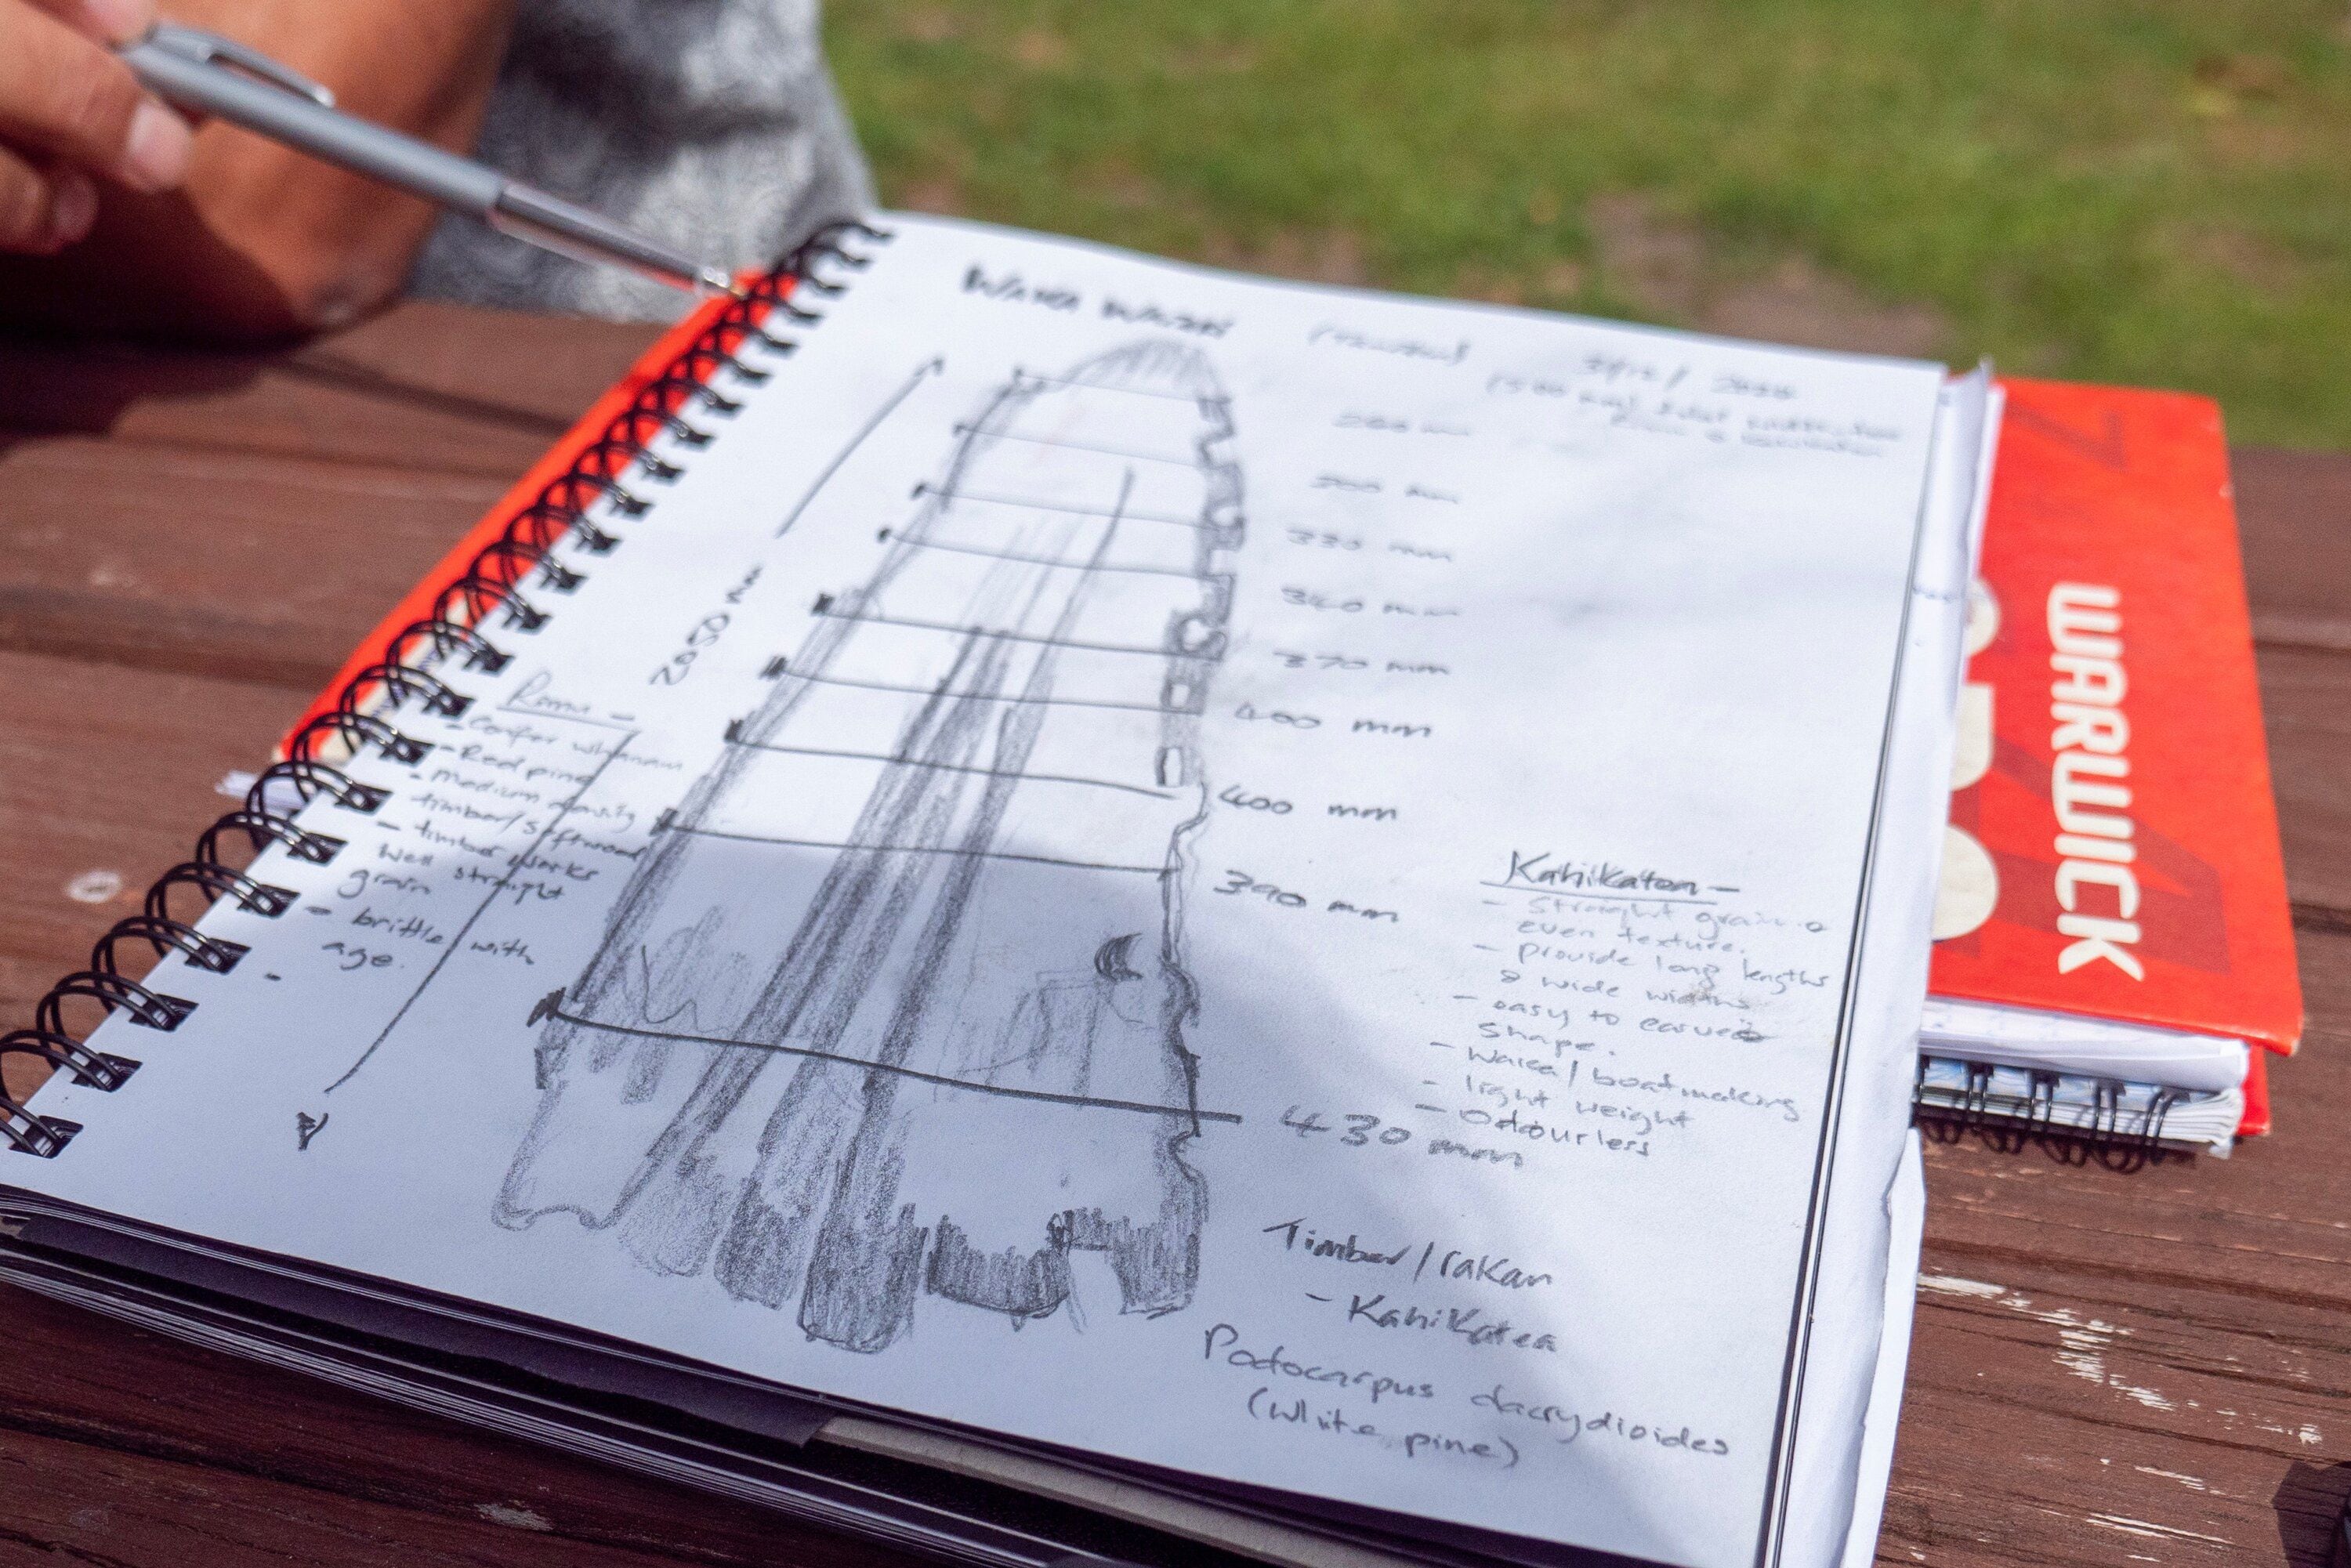 330 mm
340 mm
370 mm
400 mm
400 mm
390 mm
430 mm
2050 mm
- Conifer
- Red pine
- medium density
timber/softwood
- timber works
well straight
grain
- brittle with
age.
Kahikatea -
- straight grain &
even texture.
- provide long lengths
& wide widths
- easy to carve &
shape.
- waka/boatmaking
- light weight
- Odourless
Timber/rakau
- Kahikatea
Podocarpus dacrydioides
(white pine)
WARWICK